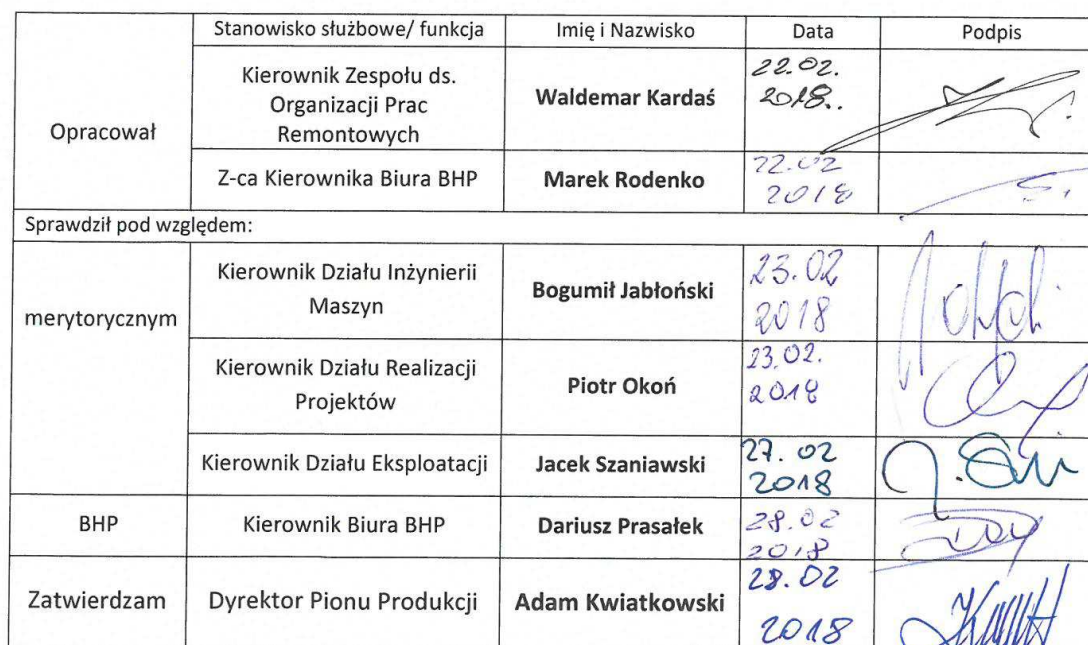 Stanowisko służbowe/ funkcja Imię i Nazwisko Data Podpis
Opracował
Kierownik Zespołu ds.
Organizacji Prac
Remontowych
Waldemar Kardaś
22.02.
2018..
Z-ca Kierownika Biura BHP
Marek Rodenko
22.02
2018
Sprawdził pod względem:
merytorycznym
Kierownik Działu Inżynierii
Maszyn
Bogumił Jabłoński
23.02
2018
Kierownik Działu Realizacji
Projektów
Piotr Okoń
23.02.
2018
Kierownik Działu Eksploatacji
Jacek Szaniawski
27.02
2018
BHP
Kierownik Biura BHP
Dariusz Prasałek
28.02
2018
Zatwierdzam
Dyrektor Pionu Produkcji
Adam Kwiatkowski
28.02
2018